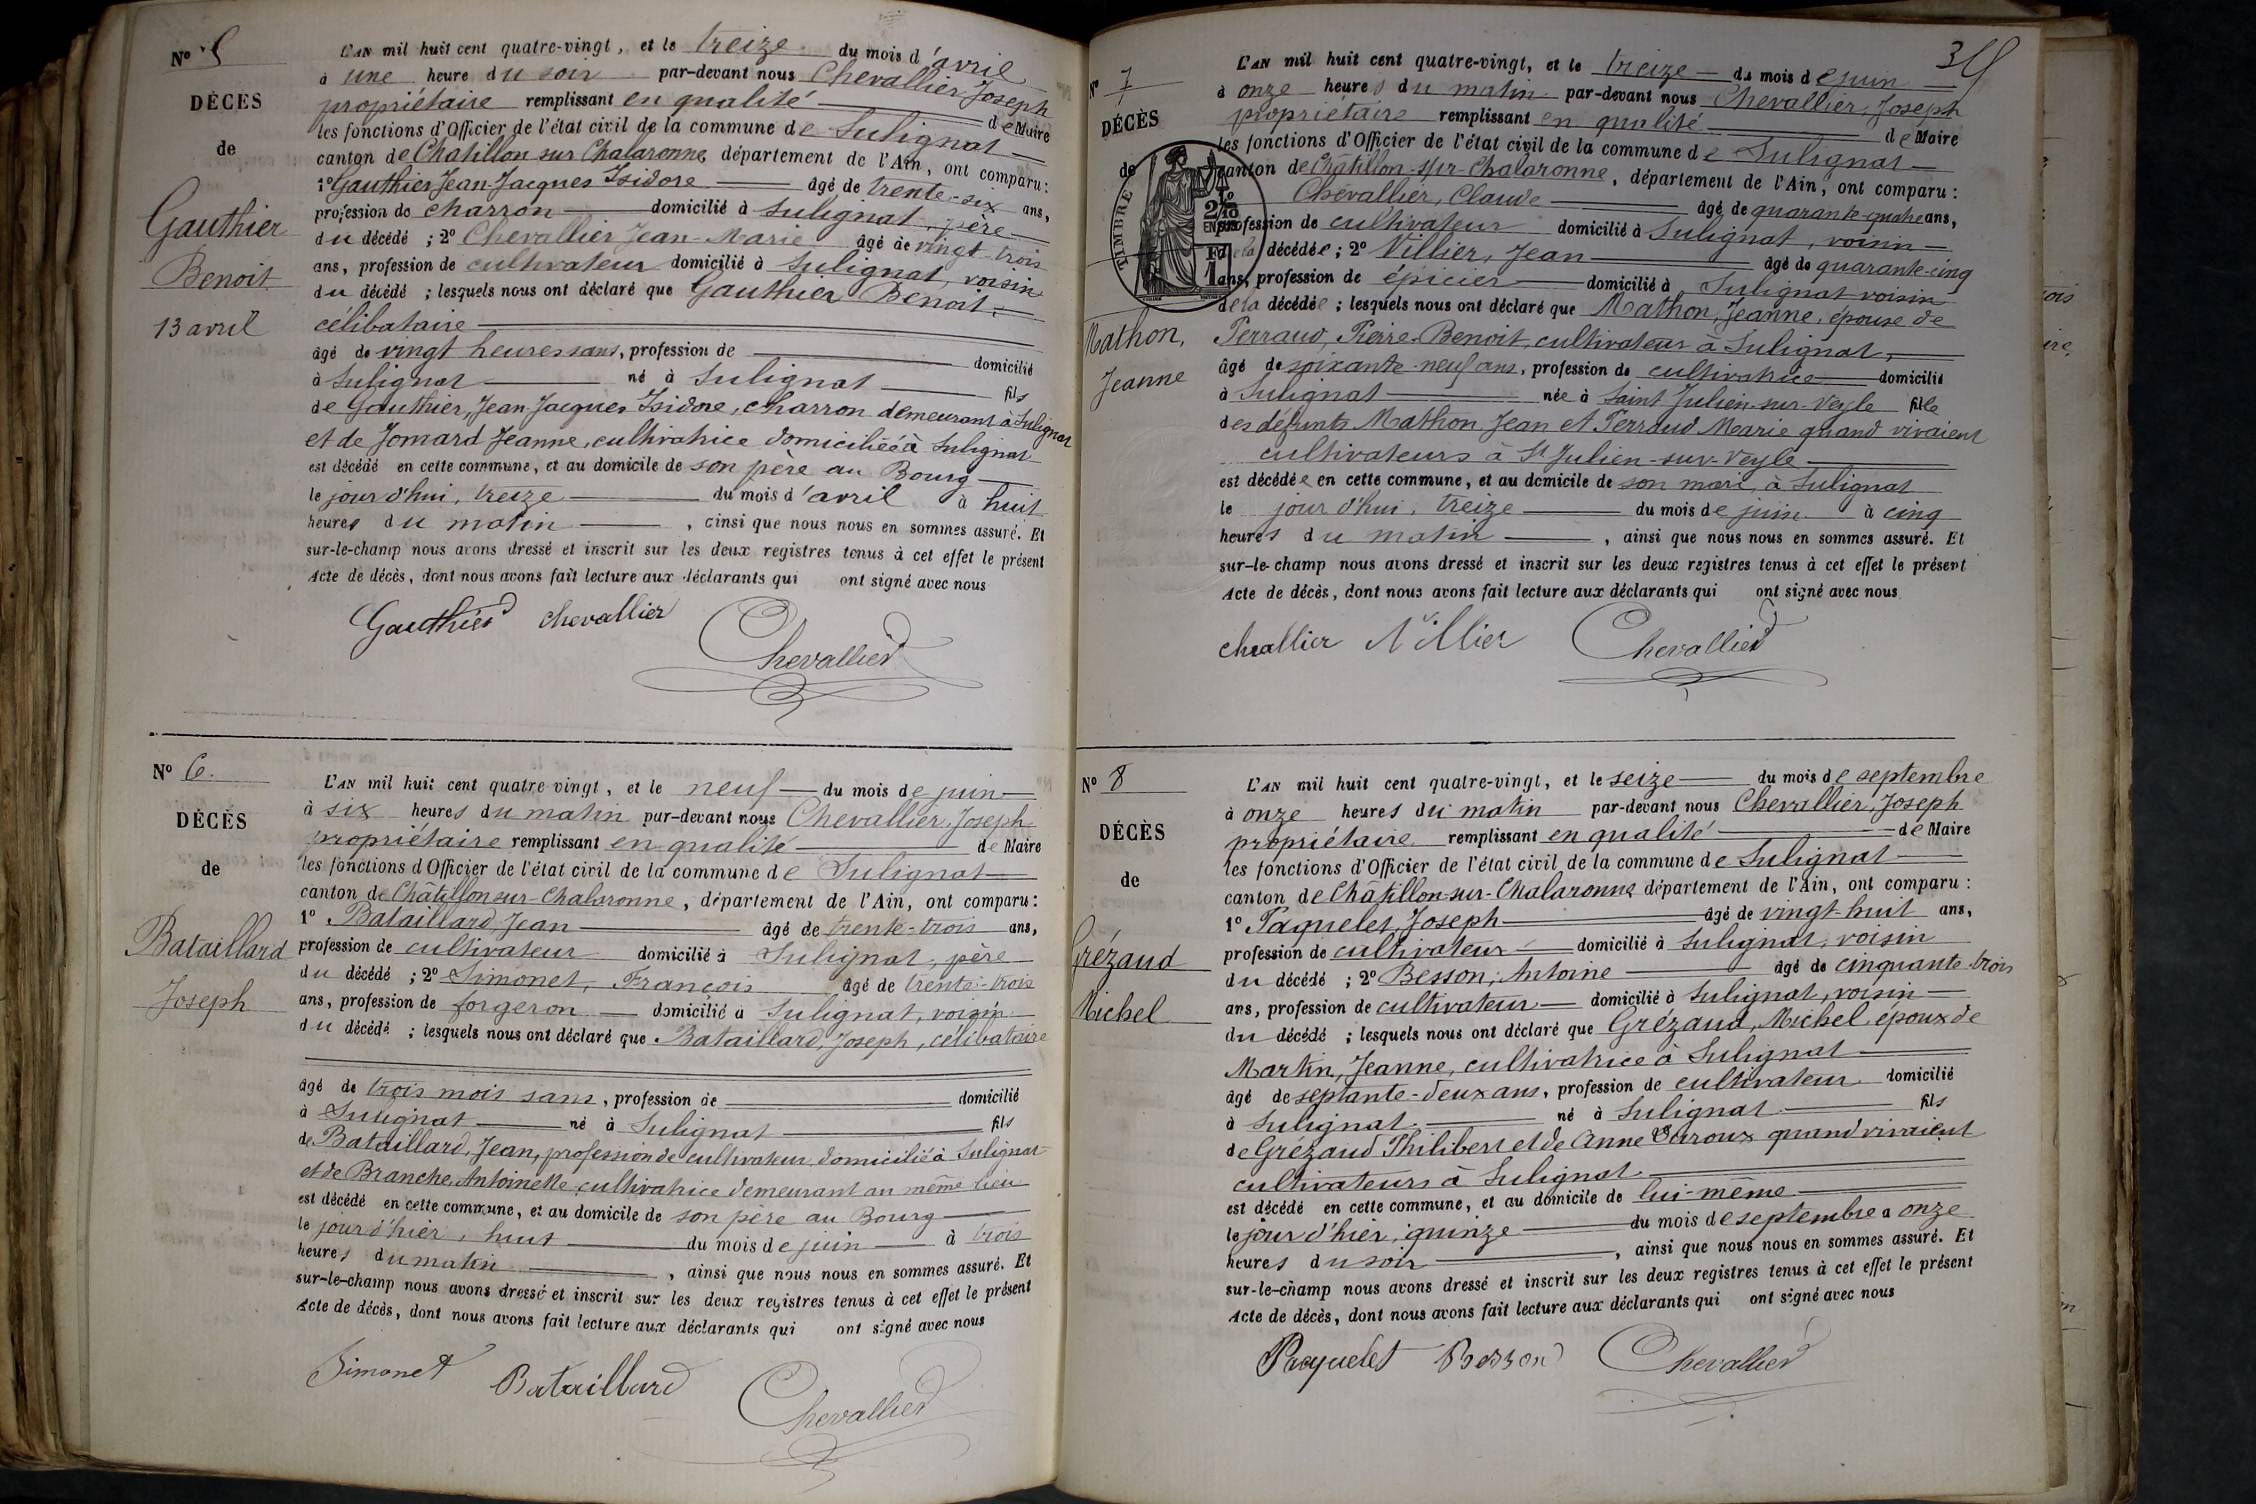 Nº 5
DÉCÈS
de
Gauthier
Benoit
13 avril
L'AN mil huit cent quatre-vingt, et le treize du mois d'avril
à une heure du soir par-devant nous Chevallier Joseph
propriétaire remplissant en qualité de Maire
les fonctions d'Officier de l'état civil de la commune de Sulignat
canton de Châtillon sur Chalaronne, département de l'Ain, ont comparu :
1º Gauthier Jean-Jacques Isidore âgé de trente-six ans,
profession de charron domicilié à Sulignat, père
du décédé ; 2º Chevallier Jean-Marie âgé de vingt-trois
ans, profession de cultivateur domicilié à Sulignat, voisin
du décédé ; lesquels nous ont déclaré que Gauthier Benoit,
célibataire
âgé de vingt heures sans, profession de domicilié
à Sulignat né à Sulignat fils
de Gauthier, Jean-Jacques Isidore, charron demeurant à Sulignat
et de Jomard Jeanne, cultivatrice domiciliée à Sulignat
est décédé en cette commune, et au domicile de son père au Bourg
le jour d'hui, treize du mois d'avril à huit
heures du matin, ainsi que nous nous en sommes assuré. Et
sur-le-champ nous avons dressé et inscrit sur les deux registres tenus à cet effet le présent
Acte de décès, dont nous avons fait lecture aux déclarants qui ont signé avec nous
Gauthier chevallier Chevallier
Nº 6.
DÉCÈS
de
Bataillard
Joseph
L'AN mil huit cent quatre-vingt, et le neuf du mois de juin
à six heures du matin par-devant nous Chevallier, Joseph
propriétaire remplissant en qualité de Maire
les fonctions d'Officier de l'état civil de la commune de Sulignat
canton de Châtillon-sur-Chalaronne, département de l'Ain, ont comparu :
1º Bataillard, Jean âgé de trente-trois ans,
profession de cultivateur domicilié à Sulignat, père
du décédé ; 2º Simonet, François âgé de trente-trois
ans, profession de forgeron domicilié à Sulignat, voisin
du décédé ; lesquels nous ont déclaré que Bataillard, Joseph, célibataire
âgé de trois mois sans, profession de domicilié
à Sulignat né à Sulignat fils
de Bataillard, Jean, profession de cultivateur, domicilié à Sulignat
et de Branche, Antoinette, cultivatrice demeurant au même lieu
est décédé en cette commune, et au domicile de son père au Bourg
le jour d'hier, huit du mois de juin à trois
heures du matin, ainsi que nous nous en sommes assuré. Et
sur-le-champ nous avons dressé et inscrit sur les deux registres tenus à cet effet le présent
Acte de décès, dont nous avons fait lecture aux déclarants qui ont signé avec nous
Simonet Bataillard Chevallier
Nº 7
DÉCÈS
de
TIMBRE
Mathon,
Jeanne
L'AN mil huit cent quatre-vingt, et le treize du mois de juin
à onze heures du matin par-devant nous Chevallier, Joseph
propriétaire remplissant en qualité de Maire
les fonctions d'Officier de l'état civil de la commune de Sulignat
canton de Châtillon-sur-Chalaronne, département de l'Ain, ont comparu :
1º Chevallier, Claude âgé de quarante-quatre ans,
profession de cultivateur domicilié à Sulignat, voisin
de la décédée ; 2º Villier, Jean âgé de quarante-cinq
ans, profession de épicier domicilié à Sulignat voisin
de la décédée ; lesquels nous ont déclaré que Mathon, Jeanne, épouse de
Perraud, Pierre-Benoit, cultivateur à Sulignat,
âgé de soixante-neuf ans, profession de cultivatrice domicilié
à Sulignat née à Saint Julien-sur-Veyle fille
des défunts Mathon Jean et Perraud Marie quand vivaient
cultivateurs à St Julien-sur-Veyle
est décédée en cette commune, et au domicile de son mari, à Sulignat
le jour d'hui, treize du mois de juin à cinq
heures du matin, ainsi que nous nous en sommes assuré. Et
sur-le-champ nous avons dressé et inscrit sur les deux registres tenus à cet effet le présent
Acte de décès, dont nous avons fait lecture aux déclarants qui ont signé avec nous
chvallier Villier Chevallier
Nº 8
DÉCÈS
de
Grézaud
Michel
L'AN mil huit cent quatre-vingt, et le seize du mois de septembre
à onze heures du matin par-devant nous Chevallier, Joseph
propriétaire remplissant en qualité de Maire
les fonctions d'Officier de l'état civil de la commune de Sulignat
canton de Châtillon-sur-Chalaronne département de l'Ain, ont comparu :
1º Paquelet, Joseph âgé de vingt-huit ans,
profession de cultivateur domicilié à Sulignat, voisin
du décédé ; 2º Besson, Antoine âgé de cinquante-trois
ans, profession de cultivateur domicilié à Sulignat, voisin
du décédé ; lesquels nous ont déclaré que Grézaud, Michel, époux de
Martin, Jeanne, cultivatrice à Sulignat
âgé de septante-deux ans, profession de cultivateur domicilié
à Sulignat né à Sulignat fils
de Grézaud Philibert et de Anne quand vivaient
cultivateurs à Sulignat
est décédé en cette commune, et au domicile de lui-même
le jour d'hier, quinze du mois de septembre à onze
heures du soir, ainsi que nous nous en sommes assuré. Et
sur-le-champ nous avons dressé et inscrit sur les deux registres tenus à cet effet le présent
Acte de décès, dont nous avons fait lecture aux déclarants qui ont signé avec nous
Paquelet Besson Chevallier